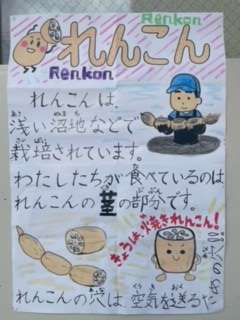 Renkon
れんこん
Renkon
れんこんは、
浅い沼地などで
栽培されています。
わたしたちが食べているのは
れんこんの茎の部分です。
きょうは、焼きれんこん!
れんこんの穴は空気を送るだ